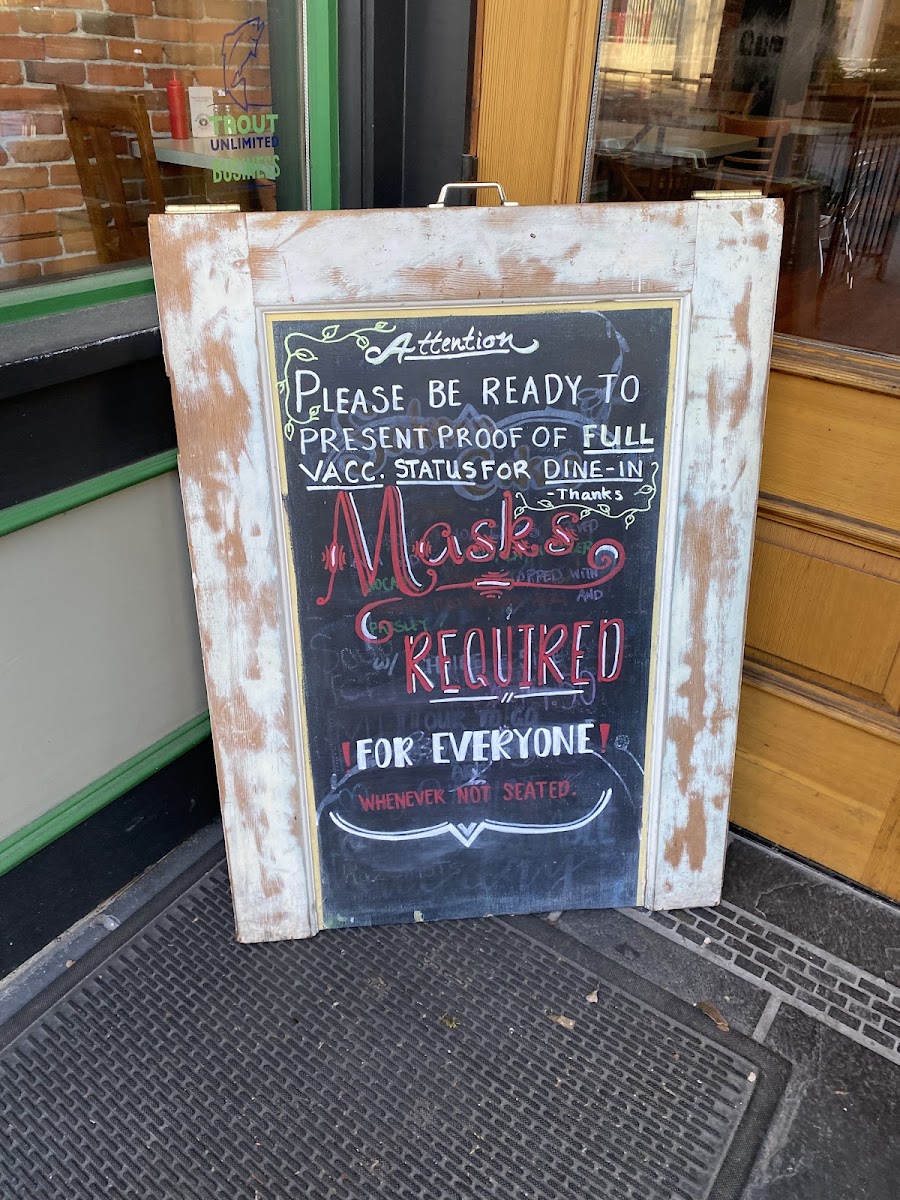 TROUT
UNLIMITED
BUSINESS
Attention
PLEASE BE READY TO
PRESENT PROOF OF FULL
VACC. STATUS FOR DINE-IN
-Thanks
Masks
REQUIRED
!FOR EVERYONE!
WHENEVER NOT SEATED.